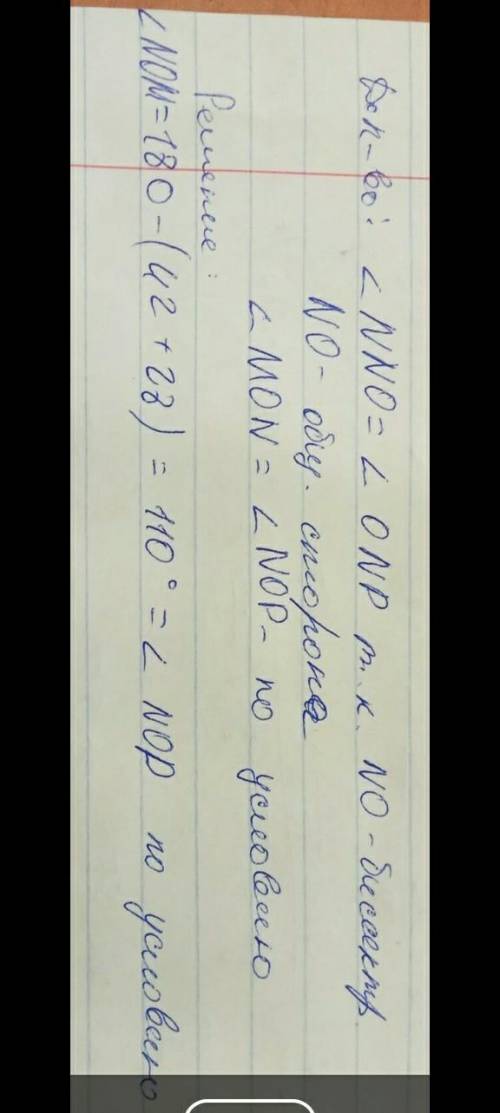 Док-во: ∠NNO = ∠ONP т.к. NO - биссектр.
NO - общ. сторона
∠MON = ∠NOP - по условию
Решение:
∠NOM = 180 - (42 + 28) = 110° = ∠NOP по условию